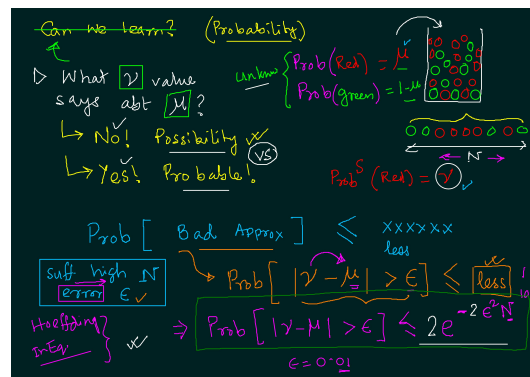 Can we learn? (Probability)
▷ What ν value
says abt μ?
↳ No! Possibility
vs
↳ Yes! Probable!
unknw { Prob(Red) = μ
Prob(green) = 1-μ
N
Prob^S (Red) = ν
Prob [ Bad Approx ] ≤ xxxxxx
less
suff high N
error ϵ
Prob [ |ν - μ| > ϵ ] ≤ less
Hoeffding
InEq.
⇒ Prob [ |ν-μ| > ϵ ] ≤ 2e^{-2ϵ²N}
ϵ = 0.01